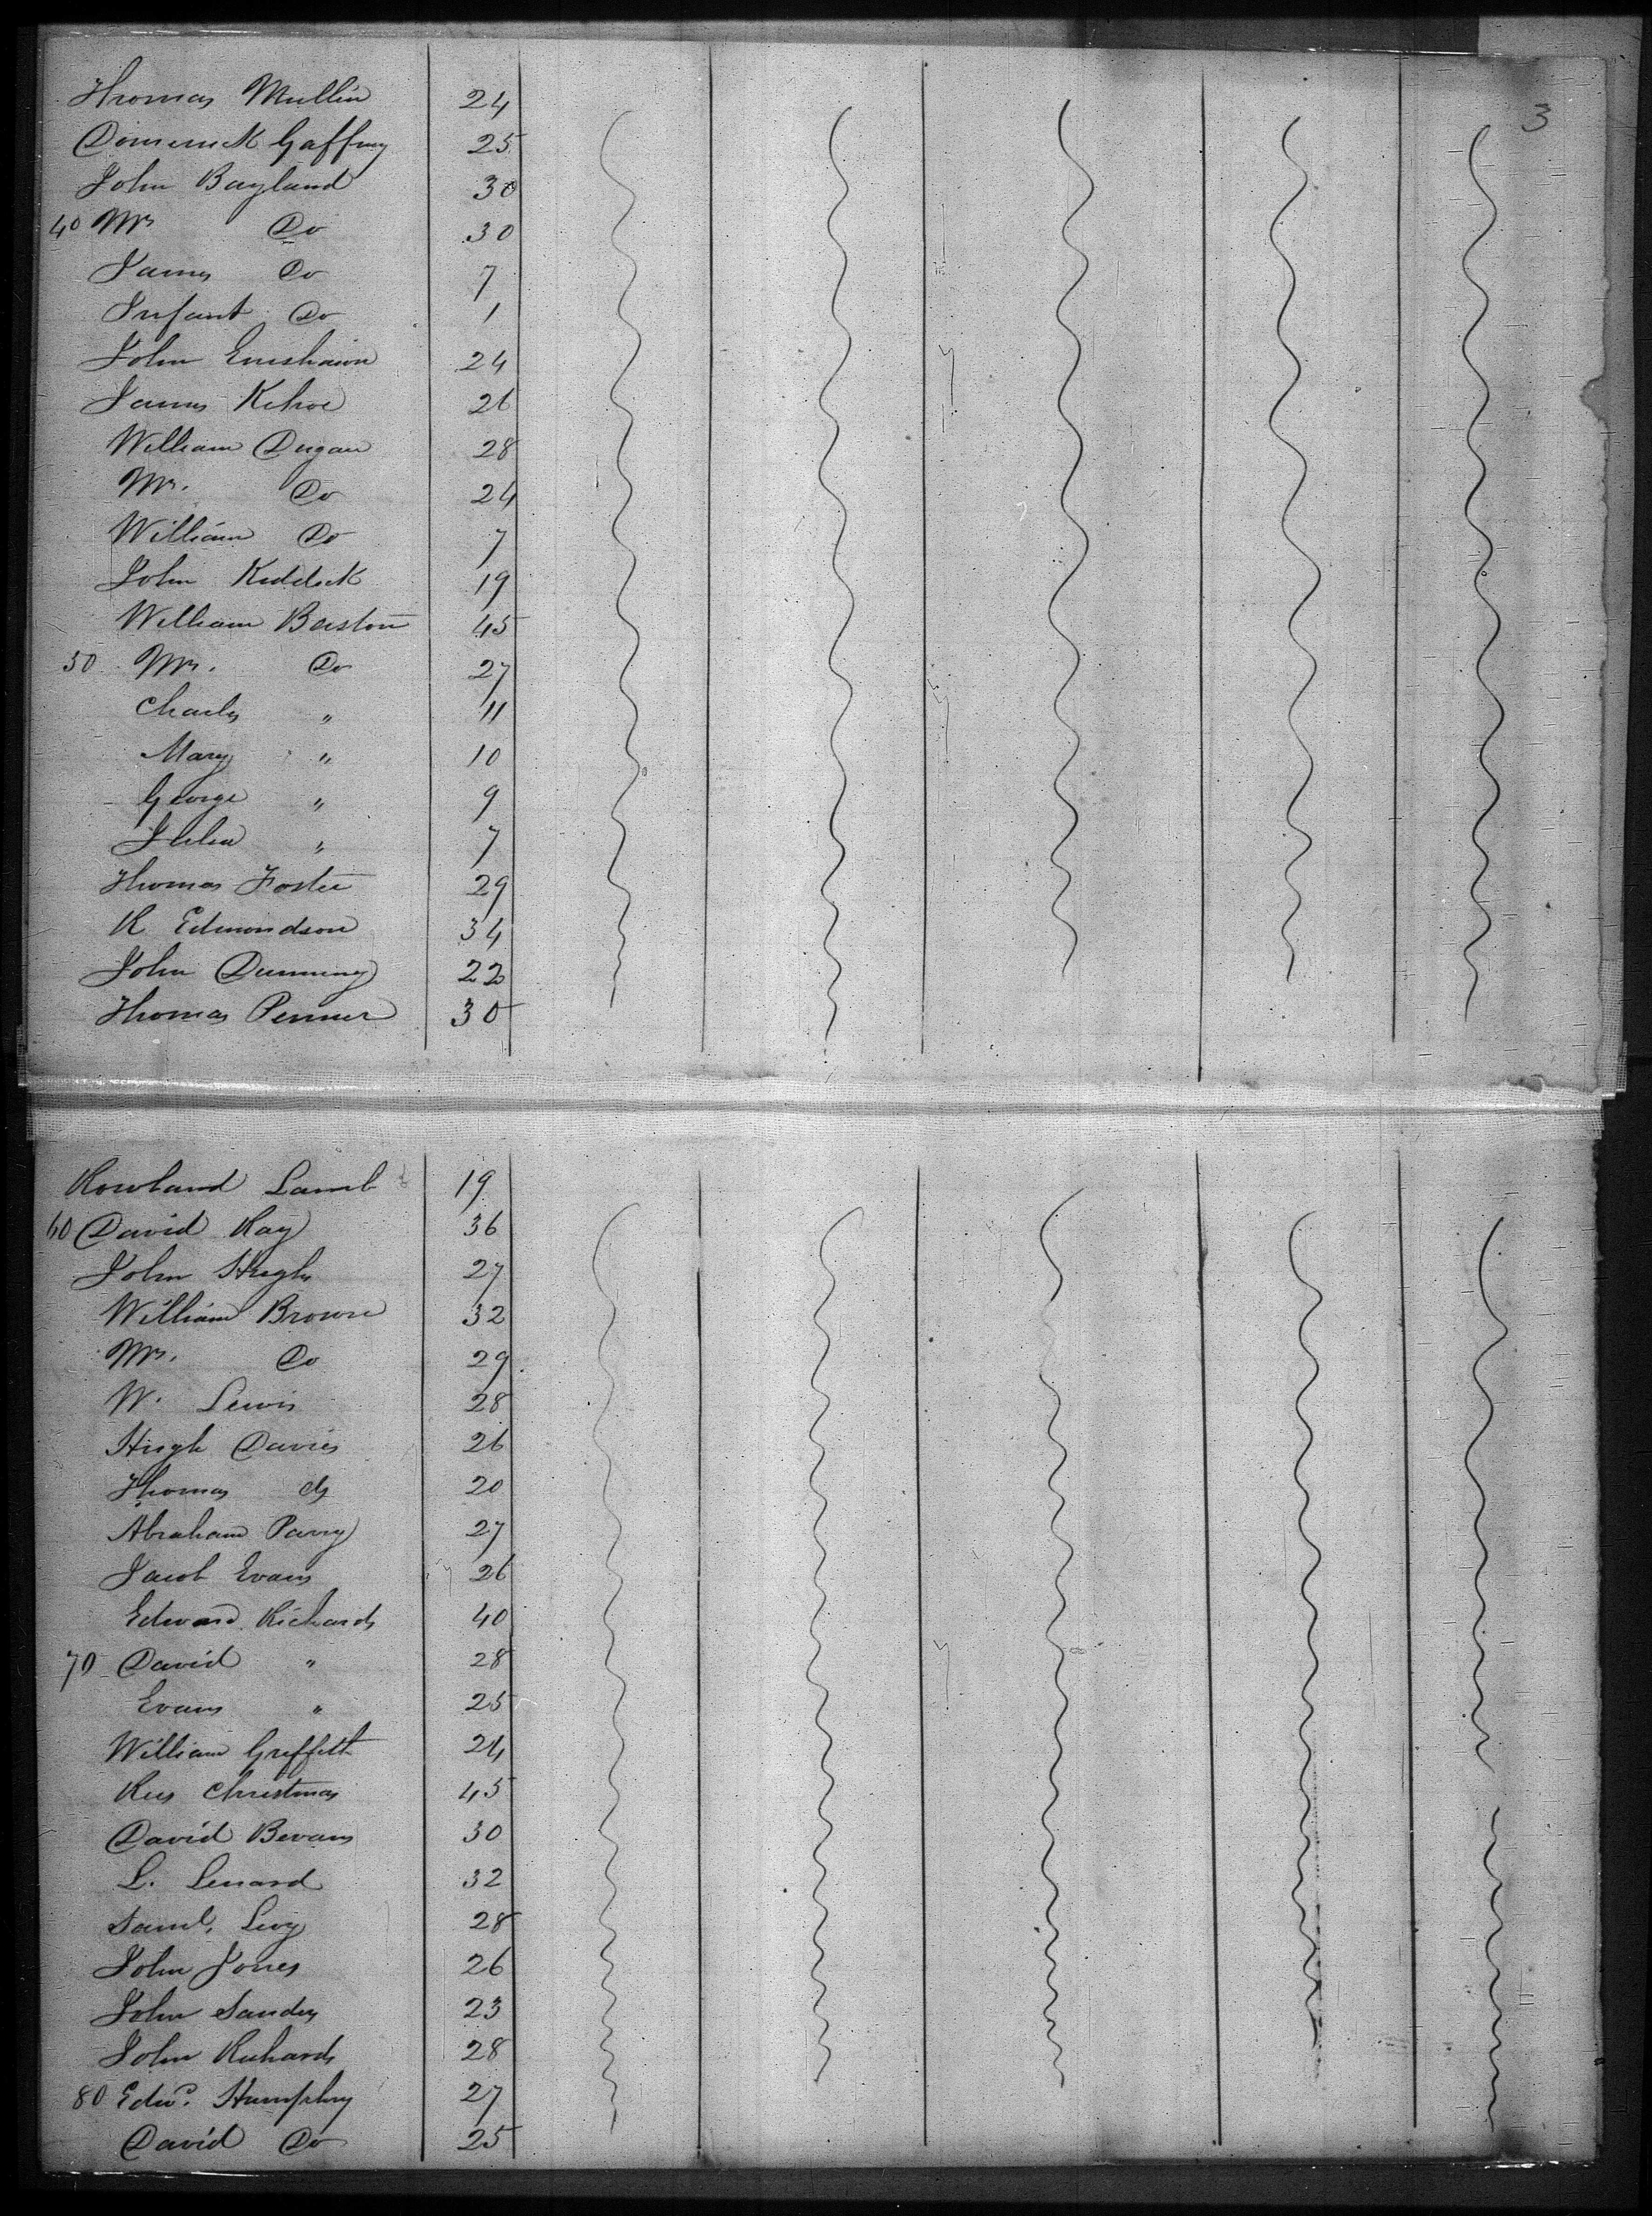 3
Thomas Mullin 24
Domenick Gaffney 25
John Bayland 30
40 Mrs Do 30
James Do 7
Infant Do 1
John 24
James Kehoe 26
William Dugan 28
Mrs. Do 24
William Do 7
John 19
William Baiston 45
50 Mrs. Do 27
Charles " 11
Mary " 10
George " 9
" 7
Thomas Foster 29
R Edmondson 34
John Dunning 22
Thomas Penner 30
Rowland Lamb 19
60 David Ray 36
John Hughs 27
William Brown 32
Mrs. Do 29
W. Lewis 28
Hugh Davies 26
Thomas do 20
Abraham Parry 27
Jacob Evans 26
Edward Richards 40
70 David " 28
Evans " 25
William Griffith 24
Rees Christmas 45
David Bevans 30
L. Lenard 32
Saml. Levy 28
John Jones 26
John Sanders 23
John Richards 28
80 Edwd. Humphry 27
David Do 25